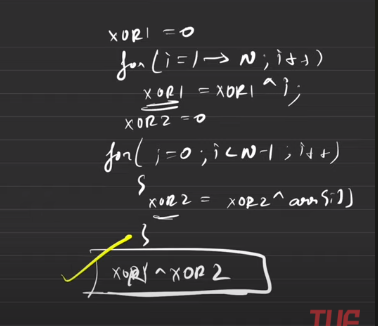 XOR1 = 0
for(i=1→N; i++)
XOR1 = XOR1 ^ i;
XOR2 = 0
for( i=0; i<N-1; i++)
{
XOR2 = XOR2 ^ arr[i]
}
XOR1 ^ XOR2
TUF